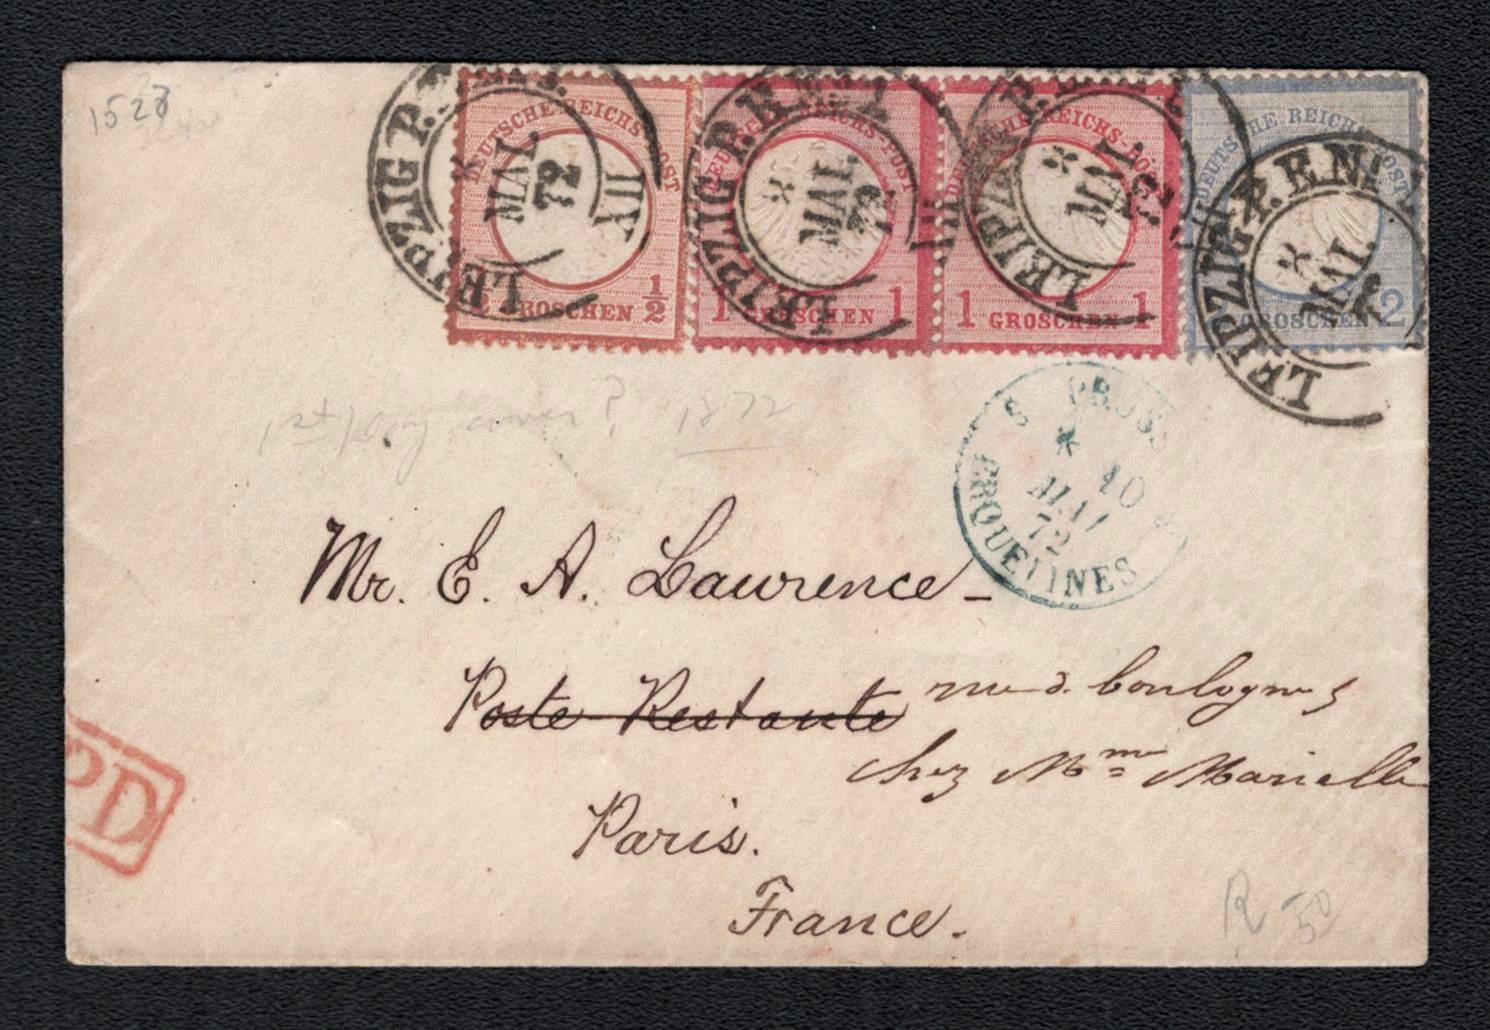 1528
LEIPZIG P.E. No 1.
MAI.
72
VII
DEUTSCHE REICHS-POST
½ GROSCHEN ½
LEIPZIG P.E. No 1.
MAI.
72
VII
DEUTSCHE REICHS-POST
1 GROSCHEN 1
LEIPZIG P.E. No 1.
MAI.
72
DEUTSCHE REICHS-POST
1 GROSCHEN 1
LEIPZIG P.E. No 1.
MAI.
DEUTSCHE REICHS-POST
GROSCHEN 2
1st Day cover? 1872
PRUSS
10
MAI
72
ERQUELINES
Mr. E. A. Lawrence
Poste Restante rue d. boulogne 5
chez Mme
Paris.
France.
PD
R 50